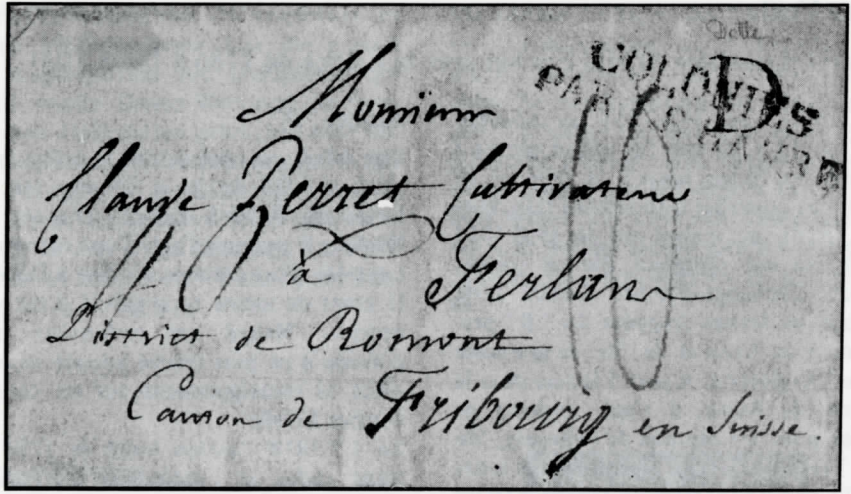 Dette
D
COLONIES
PAR LE HAVRE
Monsieur
Claude Perret Cultivateur
10
à Ferlan
District de Romont
Canton de Fribourg en Suisse.